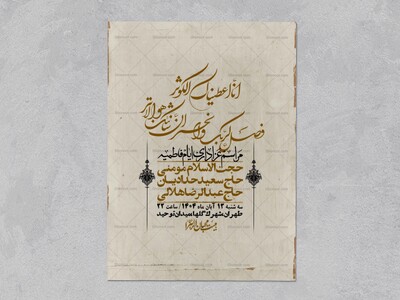 انا اعطیناک الکوثر
فصل لربک وانحر ان شانئک هو الابتر
مراسم عزاداری ایام فاطمیه
حجت الاسلام مومنی
حاج سعید حدادیان
حاج عبدالرضا هلالی
سه شنبه ۱۳ آبان ماه ۱۴۰۴ / ساعت ۲۲
طهران، شهرک گلها، میدان توحید